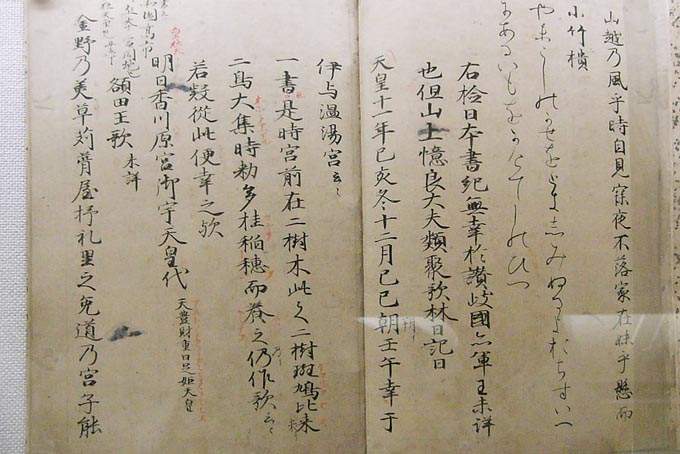 山越乃風乎時自見寐夜不落家在妹乎懸而
小竹樻
やまこしのかせをときしみぬるよおちすいへ
にあるいもをかけてしのひつ
右撿日本書紀無幸於讃岐國亦軍王未詳
也但山上憶良大夫類聚歌林曰記曰
天皇十一年己亥冬十二月己巳朔壬午幸于
伊与温湯宮云々
一書是時宮前在二樹木此之二樹斑鳩比米
二鳥大集時勅多挂稲穂而養之仍作歌云々
若疑從此便幸之歟
明日香川原宮御宇天皇代 天豊財重日足姫天皇
額田王歌 未詳
金野乃美草苅葺屋杼礼里之兔道乃宮子能